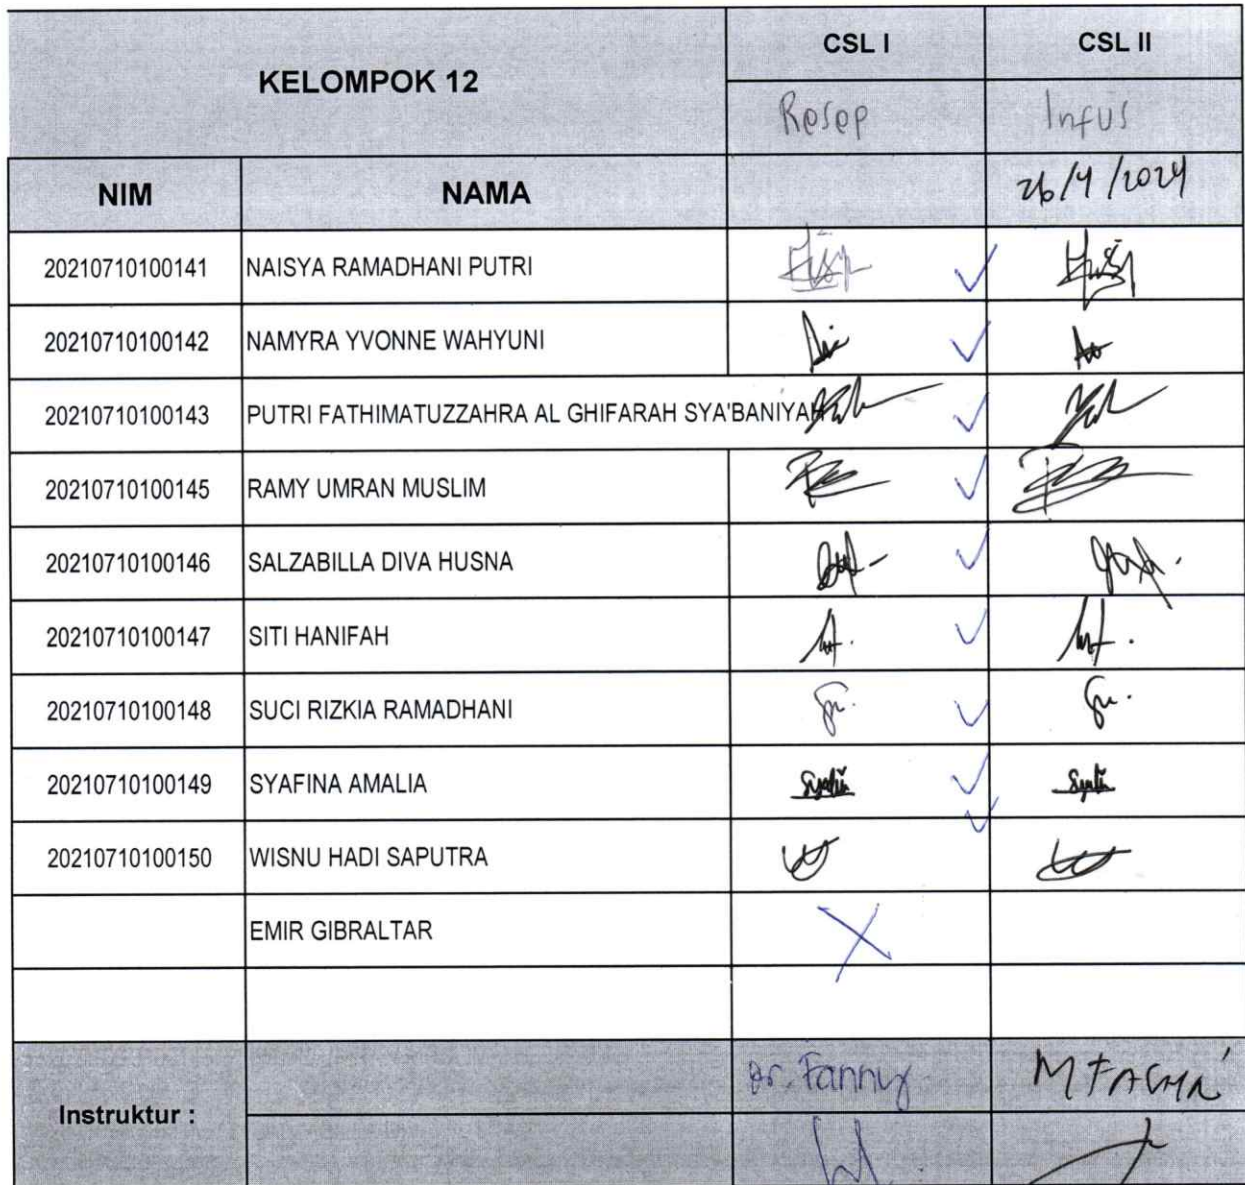 KELOMPOK 12
CSL I
CSL II
Resep
Infus
NIM
NAMA
26/4/2024
20210710100141 NAISYA RAMADHANI PUTRI
20210710100142 NAMYRA YVONNE WAHYUNI
20210710100143 PUTRI FATHIMATUZZAHRA AL GHIFARAH SYA'BANIYAH
20210710100145 RAMY UMRAN MUSLIM
20210710100146 SALZABILLA DIVA HUSNA
20210710100147 SITI HANIFAH
20210710100148 SUCI RIZKIA RAMADHANI
20210710100149 SYAFINA AMALIA
20210710100150 WISNU HADI SAPUTRA
EMIR GIBRALTAR
Instruktur :
dr. Fanny
M FACHRI